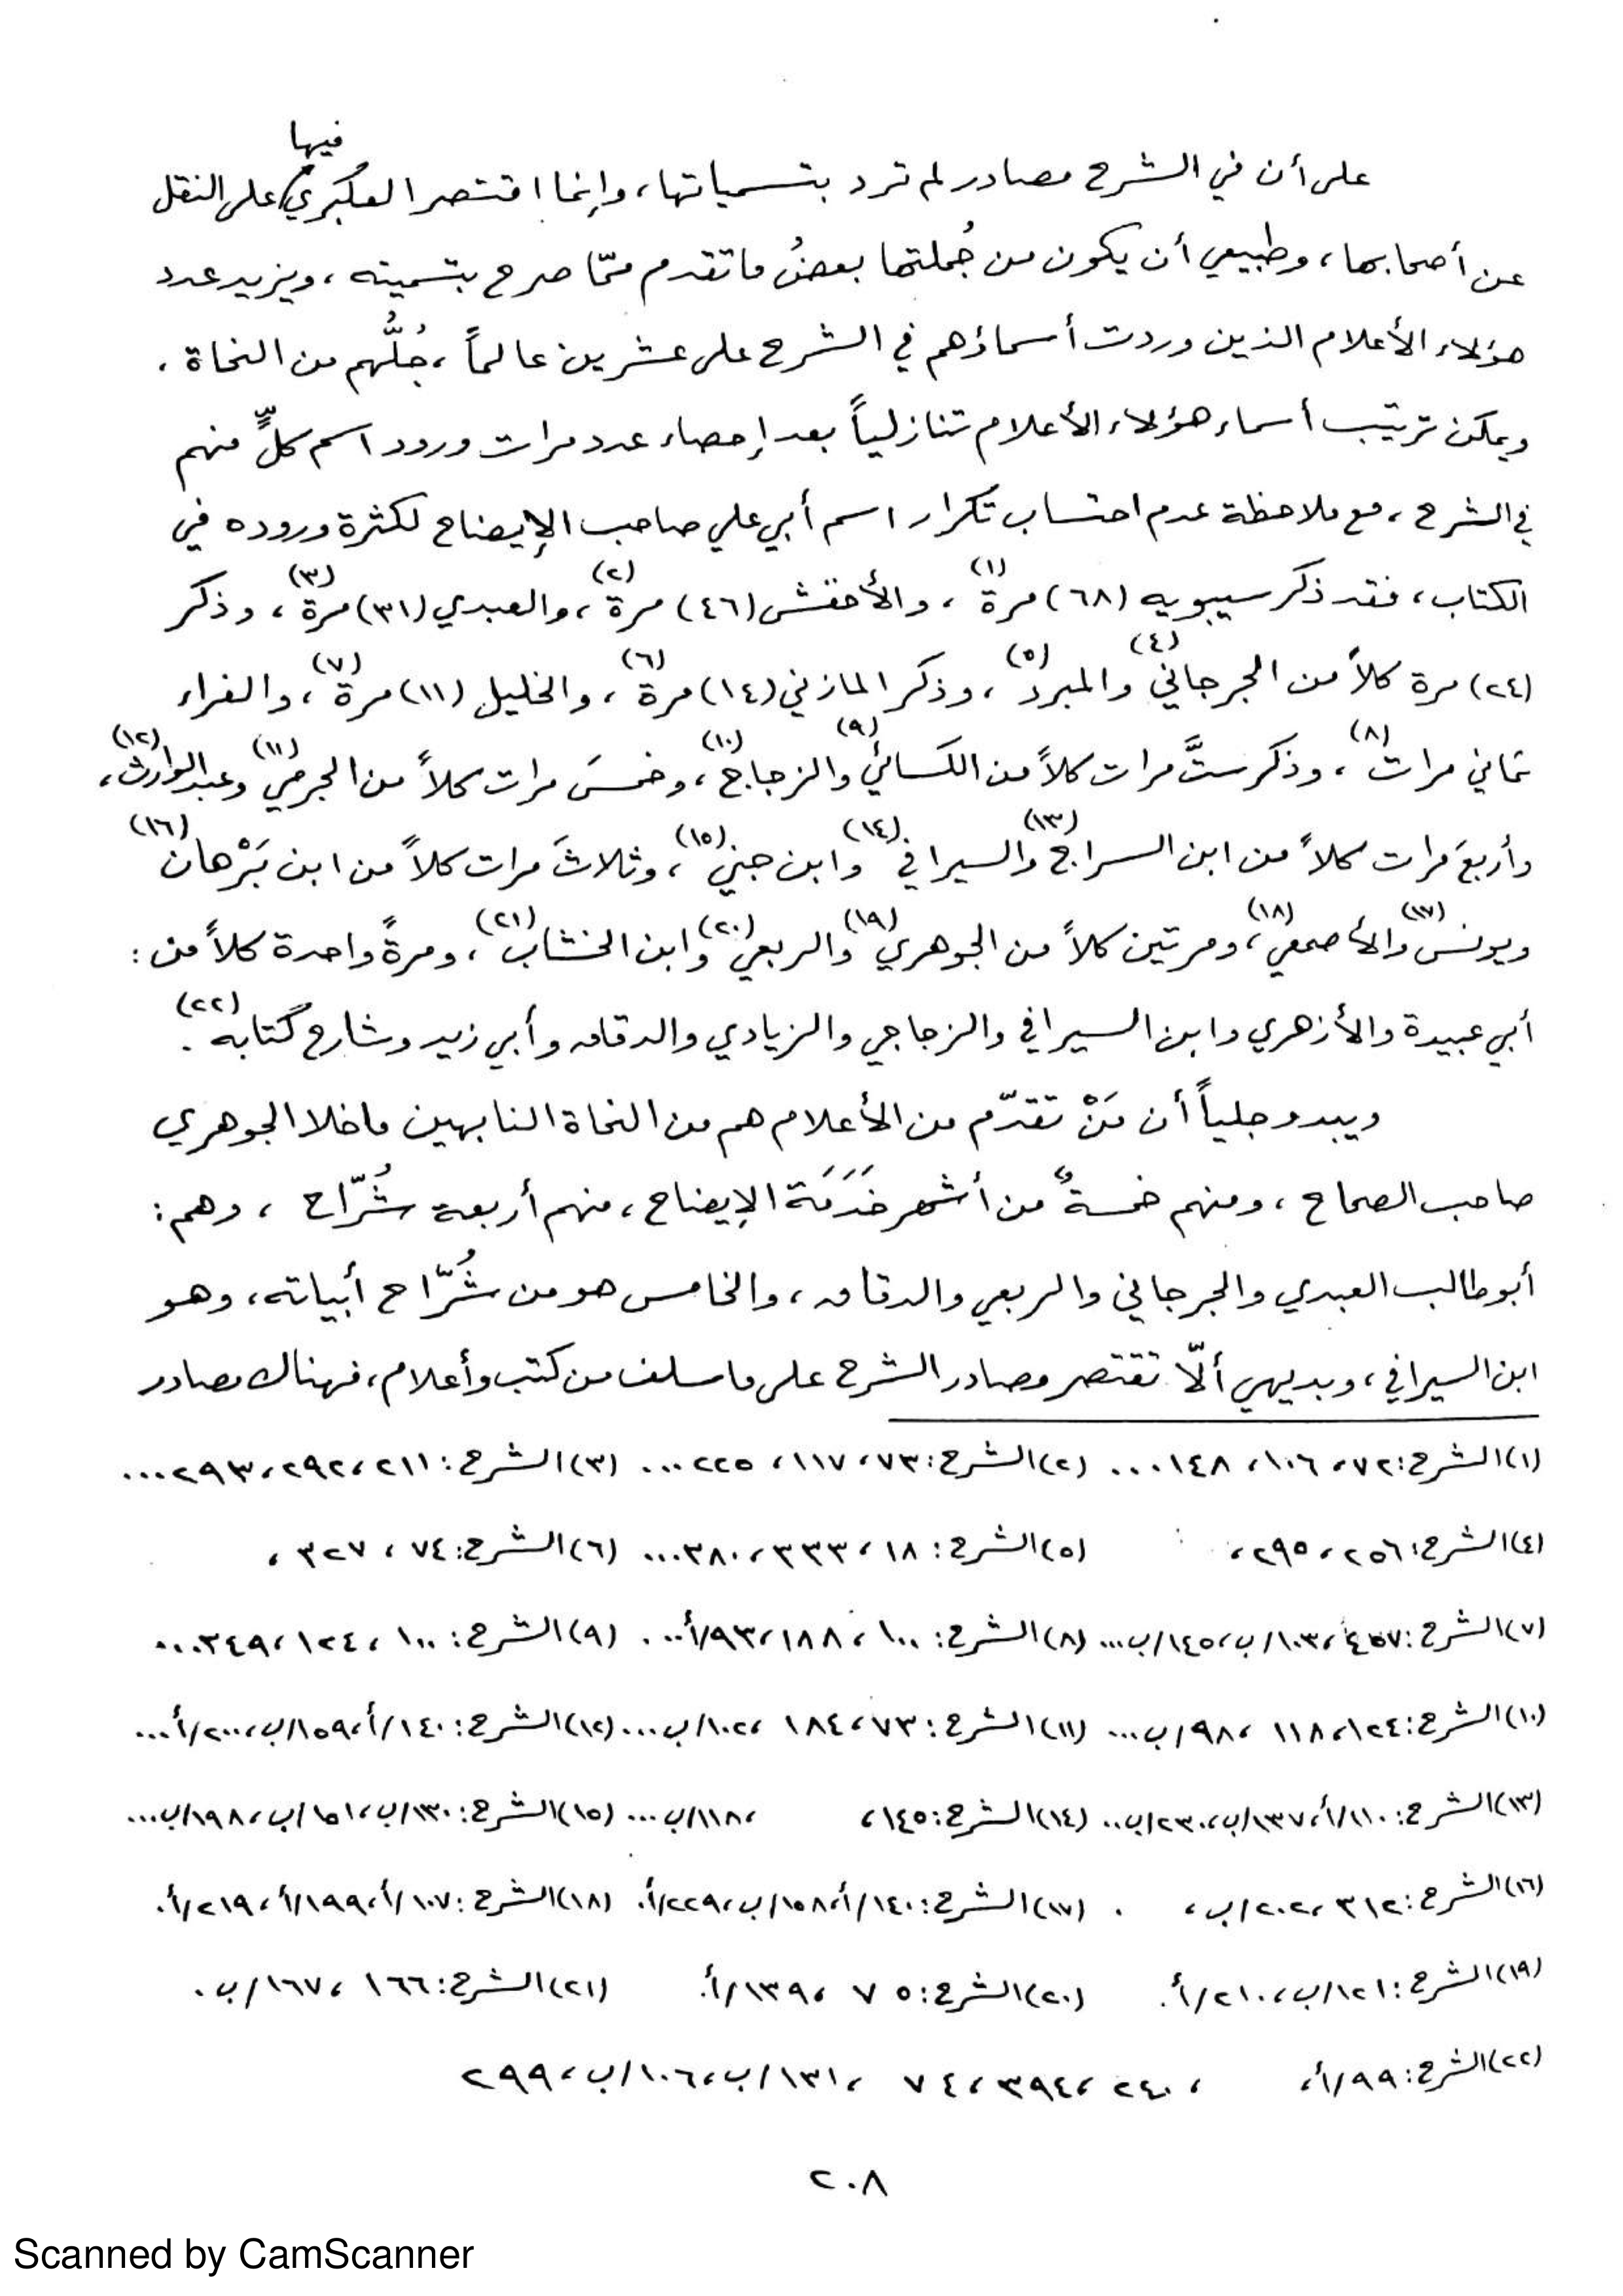 على أن في الشرح مصادر لم ترد بتسمياتها، وإنما اقتصر العكبري فيها على النقل
عن أصحابها، وطبيعي أن يكون من جُملتها بعضُ ما تقدم ممّا صرح بتسميته، ويزيد عدد
هؤلاء الأعلام الذين وردت أسماؤهم في الشرح على عشرين عالماً، جُلُّهم من النحاة.
ويمكن ترتيب أسماء هؤلاء الأعلام تنازلياً بعد إحصاء عدد مرات ورود اسم كلٍّ منهم
في الشرح، مع ملاحظة عدم احتساب تكرار اسم أبي علي صاحب الإيضاح لكثرة وروده في
الكتاب، فقد ذكر سيبويه (٦٨) مرة(١)، والأخفش (٤٦) مرة(٢)، والعبدي (٣١) مرة(٣)، وذكر
(٢٤) مرة كلاً من الجرجاني(٤) والمبرد(٥)، وذكر المازني (١٤) مرة(٦)، والخليل (١١) مرة(٧)، والفراء
ثماني مرات(٨)، وذكر ستَّ مرات كلاً من الكسائي(٩) والزجاج(١٠)، وخمسَ مرات كلاً من الجرمي(١١) وعبد الوارث(١٢)،
وأربعَ مرات كلاً من ابن السراج(١٣) والسيرافي(١٤) وابن جني(١٥)، وثلاثَ مرات كلاً من ابن بَرْهان(١٦)
ويونس(١٧) والأصمعي(١٨)، ومرتين كلاً من الجوهري(١٩) والربعي(٢٠) وابن الخشاب(٢١)، ومرةً واحدة كلاً من:
أبي عبيدة والأزهري وابن السيرافي والزجاجي والزيادي والدقاق وأبي زيد وشارح كتابه(٢٢).
ويبدو جلياً أن مَنْ تقدّم من الأعلام هم من النحاة النابهين ما خلا الجوهري
صاحب الصحاح، ومنهم خمسةٌ من أشهر خَدَمَة الإيضاح، منهم أربعة شُرّاح، وهم:
أبو طالب العبدي والجرجاني والربعي والدقاق، والخامس هو من شُرّاح أبياته، وهو
ابن السيرافي، وبديهي ألّا تقتصر مصادر الشرح على ما سلف من كتب وأعلام، فهناك مصادر
(١) الشرح: ٧٢، ١٠٦، ١٤٨... (٢) الشرح: ٧٣، ١١٧، ٢٢٥... (٣) الشرح: ٢١١، ٢٩٢، ٢٩٣...
(٤) الشرح: ٢٥٦، ٢٩٥، (٥) الشرح: ١٨، ٣٣٣، ٣٨٠... (٦) الشرح: ٧٤، ٣٢٧،
(٧) الشرح: ١٠٣/ب، ١٤٥/ب... (٨) الشرح: ١٠٠، ١٨٨، ٩٣/أ... (٩) الشرح: ١٠٠، ١٢٤، ٣٤٩...
(١٠) الشرح: ١٢٤، ١١٨، ٩٨/ب... (١١) الشرح: ٧٣، ١٨٤، ١٠٢/ب... (١٢) الشرح: ١٤٠/أ، ١٥٩/ب، ٢٠٠/أ...
(١٣) الشرح: ١١٠/أ، ١٣٧/ب، ٢٣٠/ب.. (١٤) الشرح: ١٤٥، ، ١١٨/ب... (١٥) الشرح: ١٣٠/ب، ١٥١/ب، ١٩٨/ب...
(١٦) الشرح: ٣١٢، ٢٠٢/ب، . (١٧) الشرح: ١٤٠/أ، ١٥٨/ب، ٢٢٩/أ. (١٨) الشرح: ١٠٧/أ، ١٩٩/أ، ٢١٩/أ.
(١٩) الشرح: ١٢١/ب، ٢١٠/أ. (٢٠) الشرح: ٧٥، ١٣٩/أ. (٢١) الشرح: ١٦٦، ١٦٧/ب.
(٢٢) الشرح: ٩٩/أ، ، ٢٤٠، ٣٩٤، ٧٤، ١٣١/ب، ١٠٦/ب، ٢٩٩
٢٠٨
Scanned by CamScanner